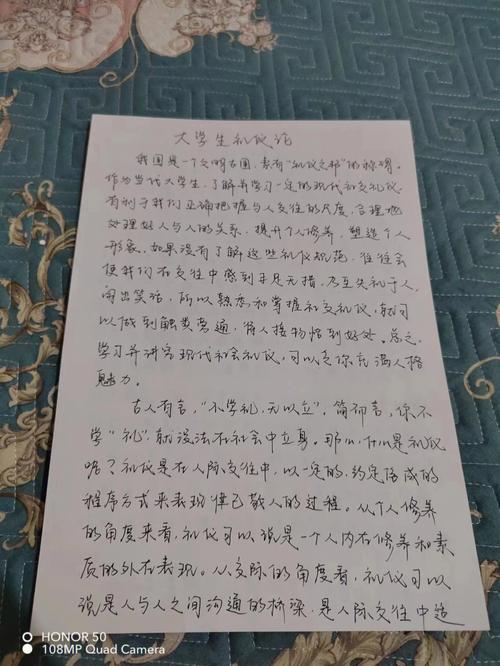 大学生礼仪论
我国是一个文明古国，素有“礼仪之邦”的称谓。
作为当代大学生，了解并学习一定的现代社交礼仪，
有利于我们正确把握与人交往的尺度，合理地
处理好人与人的关系，提升个人修养，塑造个人
形象。如果没有了解这些礼仪规范，往往会
使我们在交往中感到手足无措，乃至失礼于人，
闹出笑话，所以熟悉和掌握社交礼仪，就可
以做到触类旁通，待人接物恰到好处。总之，
学习并讲究现代社会礼仪，可以使你充满人格
魅力。
古人有言，“不学礼，无以立”。简而言，你不
学“礼”，就没法在社会中立身。那么，什么是礼仪
呢？礼仪是在人际交往中，以一定的，约定俗成的
程序方式来表现律己敬人的过程。从个人修养
的角度来看，礼仪可以说是一个人内在修养和素
质的外在表现。从交际的角度看，礼仪可以
说是人与人之间沟通的桥梁，是人际交往中适
HONOR 50
108MP Quad Camera